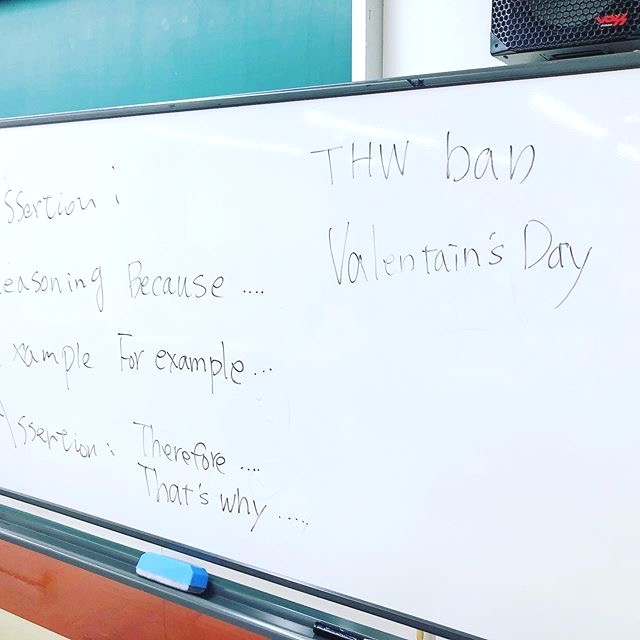 Assertion:
Reasoning Because ....
Example For example...
Assertion: Therefore ....
That's why .....
THW ban
Valentain's Day